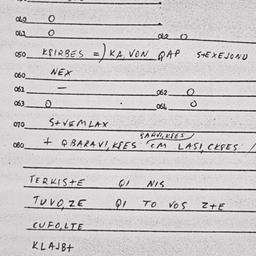 040 O
041 O 042 O
050 KRIRBES =) KA, VON QAP S+EXEJONU
060 NEX
061 — 062 O
063 O 064 O
070 S+VEMLAX
080 + QBARAVI, KEES CM LASI, CKEES /
TERKIS+E QI NIS
TUVO, ZE QI TO VOS Z+E
CUFO, LTE
KLAJB+